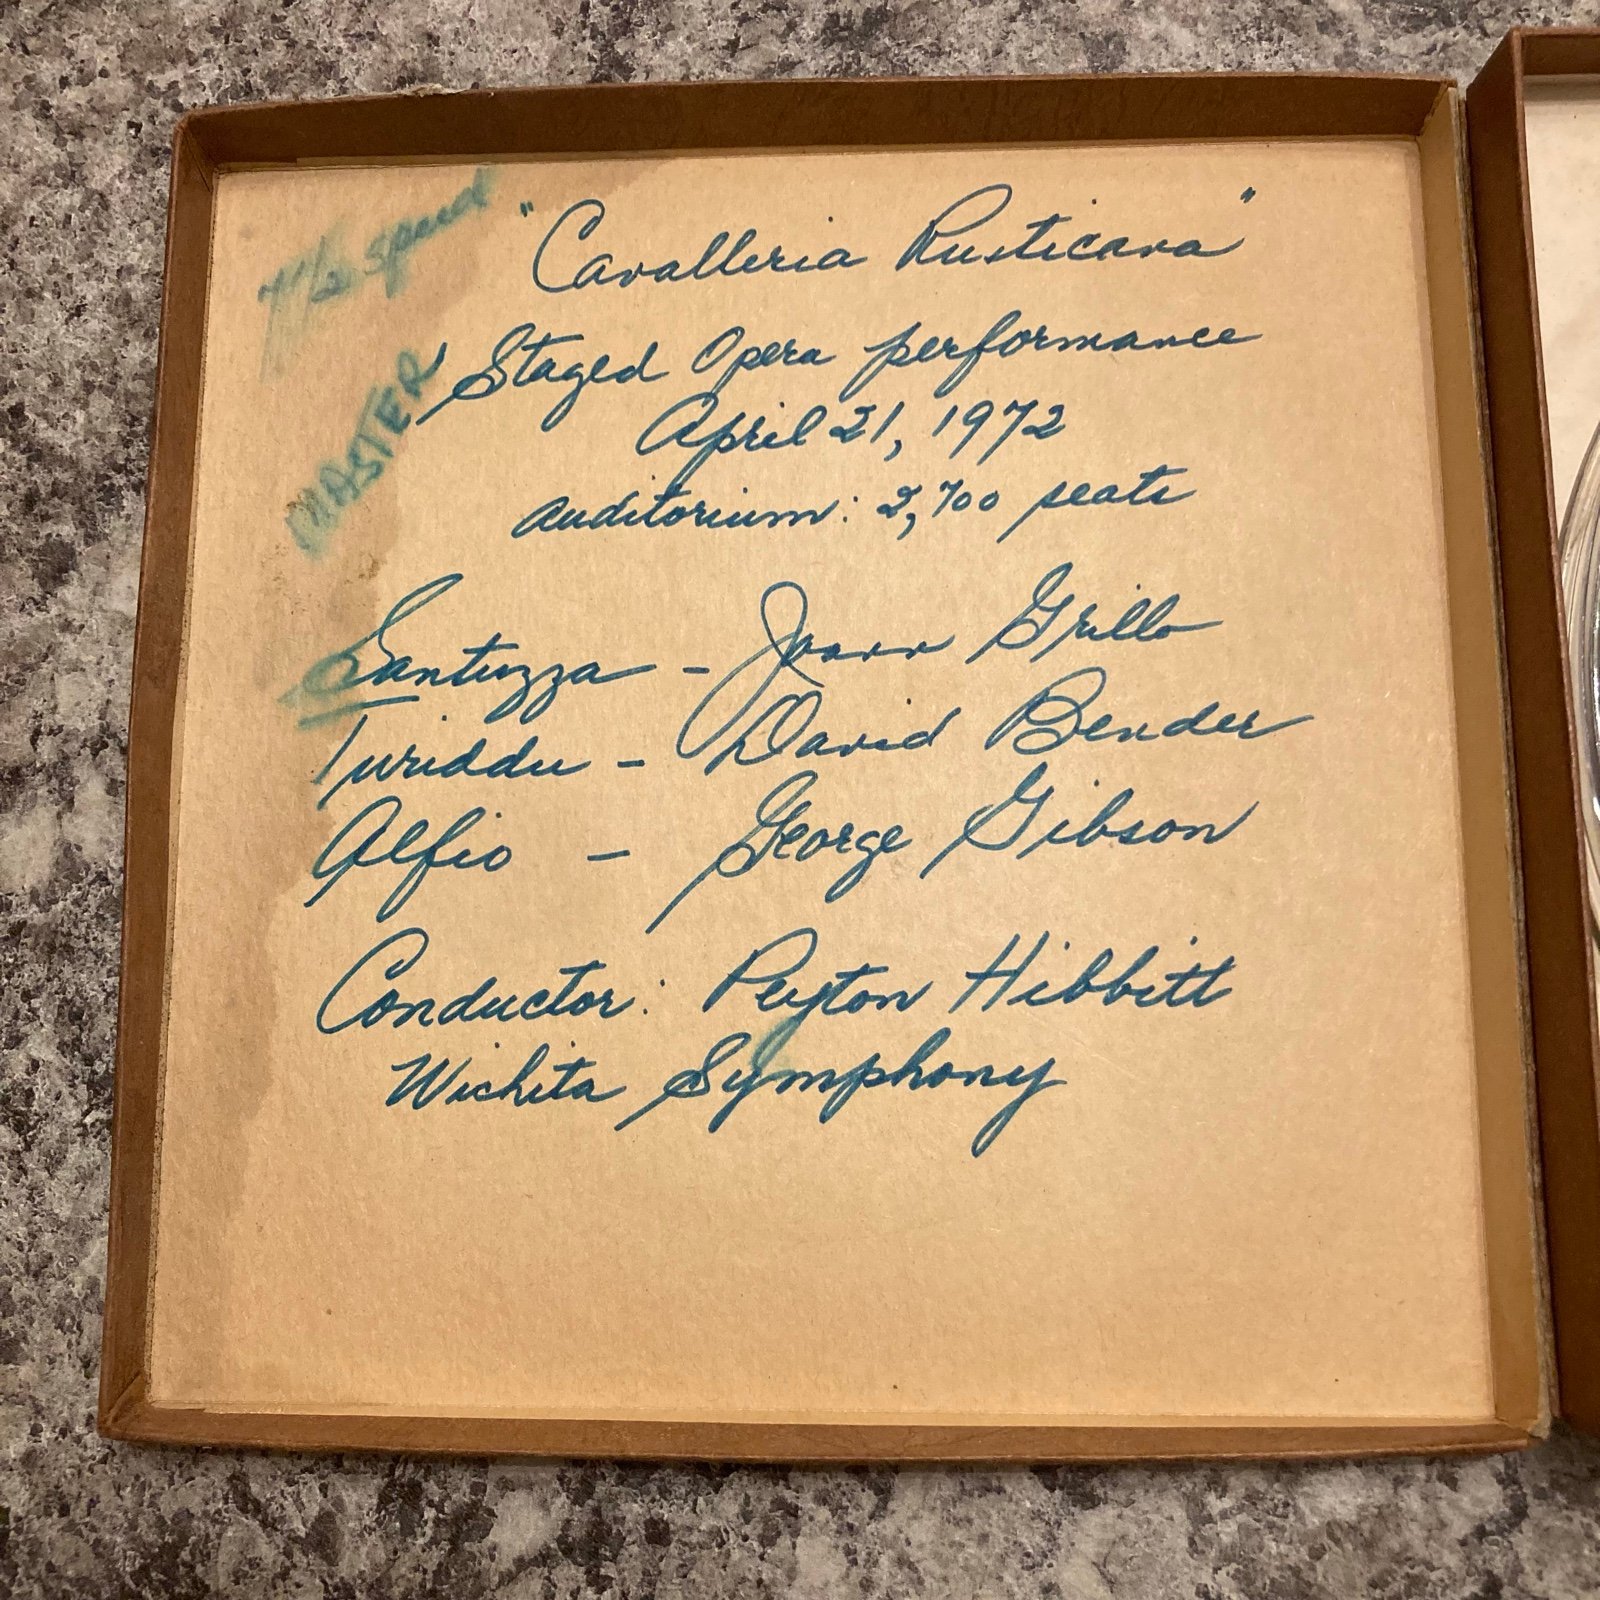 7 1/2 speed
MASTER
"Cavalleria Rusticana"
Staged Opera performance
April 21, 1972
Auditorium: 2,700 seats
Santuzza - Joann Grillo
Turiddu - David Bender
Alfio - George Gibson
Conductor: Peyton Hibbitt
Wichita Symphony